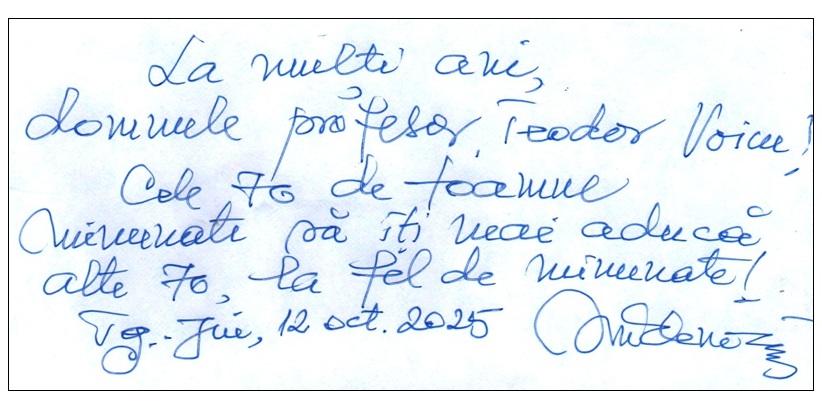 La multi ani,
domnule profesor Teodor Voicu!
Cele 70 de toamne
minunate să îți mai aducă
alte 70, la fel de minunate!
Tg.-Jiu, 12 oct. 2025